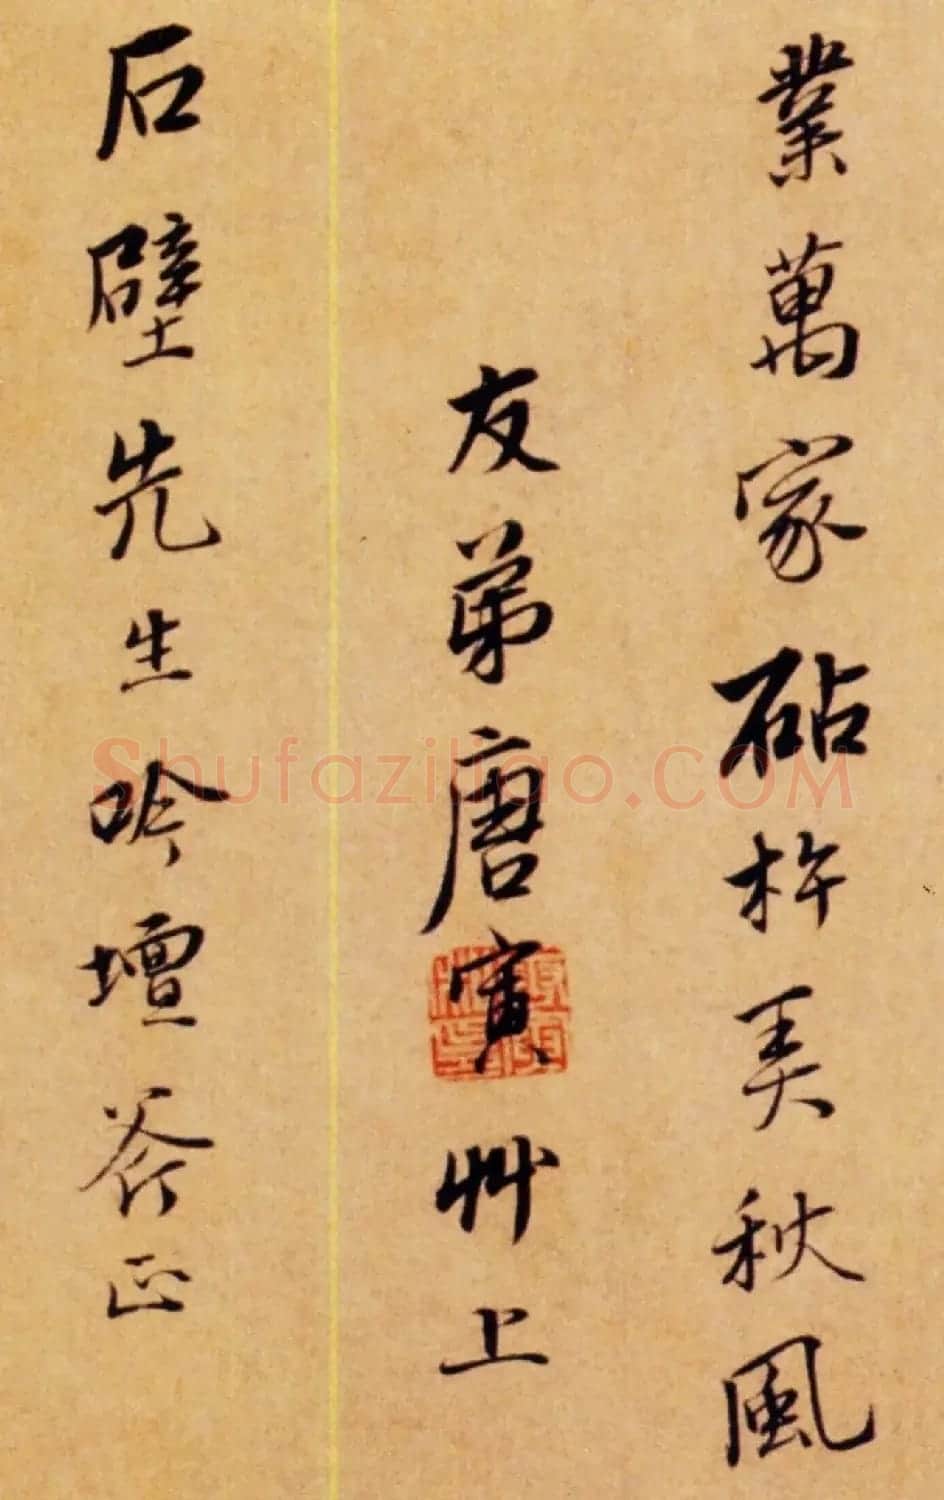 業萬家砧杵美秋風
友弟唐寅艸上
石壁先生吟壇斧正
Shufaziliao.COM